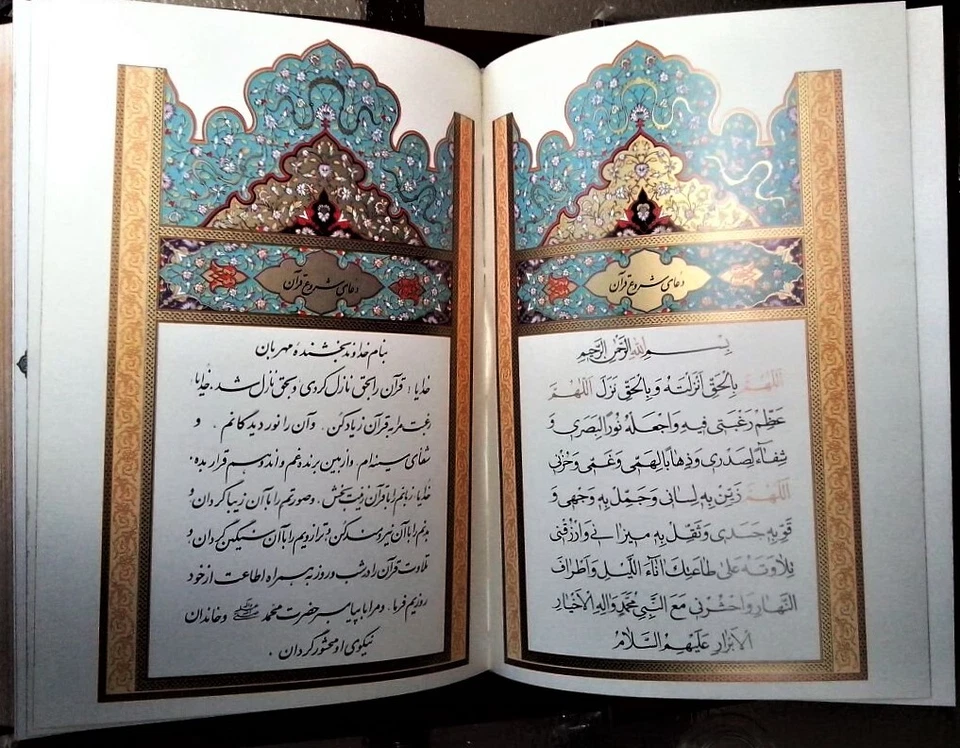 دعای شروع قرآن
بِسْمِ اللهِ الرَّحْمٰنِ الرَّحِیمِ
اَللّٰهُمَّ بِالْحَقِّ اَنْزَلْتَهُ وَ بِالْحَقِّ نَزَلَ اَللّٰهُمَّ
عَظِّمْ رَغْبَتی فیهِ وَاجْعَلْهُ نُورًا لِبَصَری وَ
شِفٰاءً لِصَدْری وَ ذِهٰابًا لِهَمّی وَ غَمّی وَ حُزْنی
اَللّٰهُمَّ زَیِّنْ بِهِ لِسٰانی وَ جَمِّلْ بِهِ وَجْهی وَ
قَوِّ بِهِ جَسَدی وَ ثَقِّلْ بِهِ میزٰانی وَارْزُقْنی
تِلٰاوَتَهُ عَلیٰ طٰاعَتِکَ آنٰاءَ اللَّیْلِ وَ اَطْرٰافَ
النَّهٰارِ وَاحْشُرْنی مَعَ النَّبِیِّ مُحَمَّدٍ وَآلِهِ الْاَخْیٰارِ
الْاَبْرٰارِ عَلَیْهِمُ السَّلٰامُ
دعای شروع قرآن
بنام خداوند بخشنده مهربان
خدایا، قرآن را بحق نازل کردی و بحق نازل شد، خدایا،
رغبت مرا به قرآن زیاد کن. و آن را نور دیدگانم. و
شفای سینه ام، و از بین برنده غم و اندوهم قرار بده.
خدایا، زبانم را با قرآن زینت بخش، و صورتم را با آن زیبا گردان و
بدنم را با آن نیرومند کن و ترازویم را با آن سنگین گردان و
تلاوت قرآن را در شب و روز به همراه اطاعت از خود
روزیم فرما. و مرا با پیامبر حضرت محمد ﷺ و خاندان
نیکوی او محشور گردان.